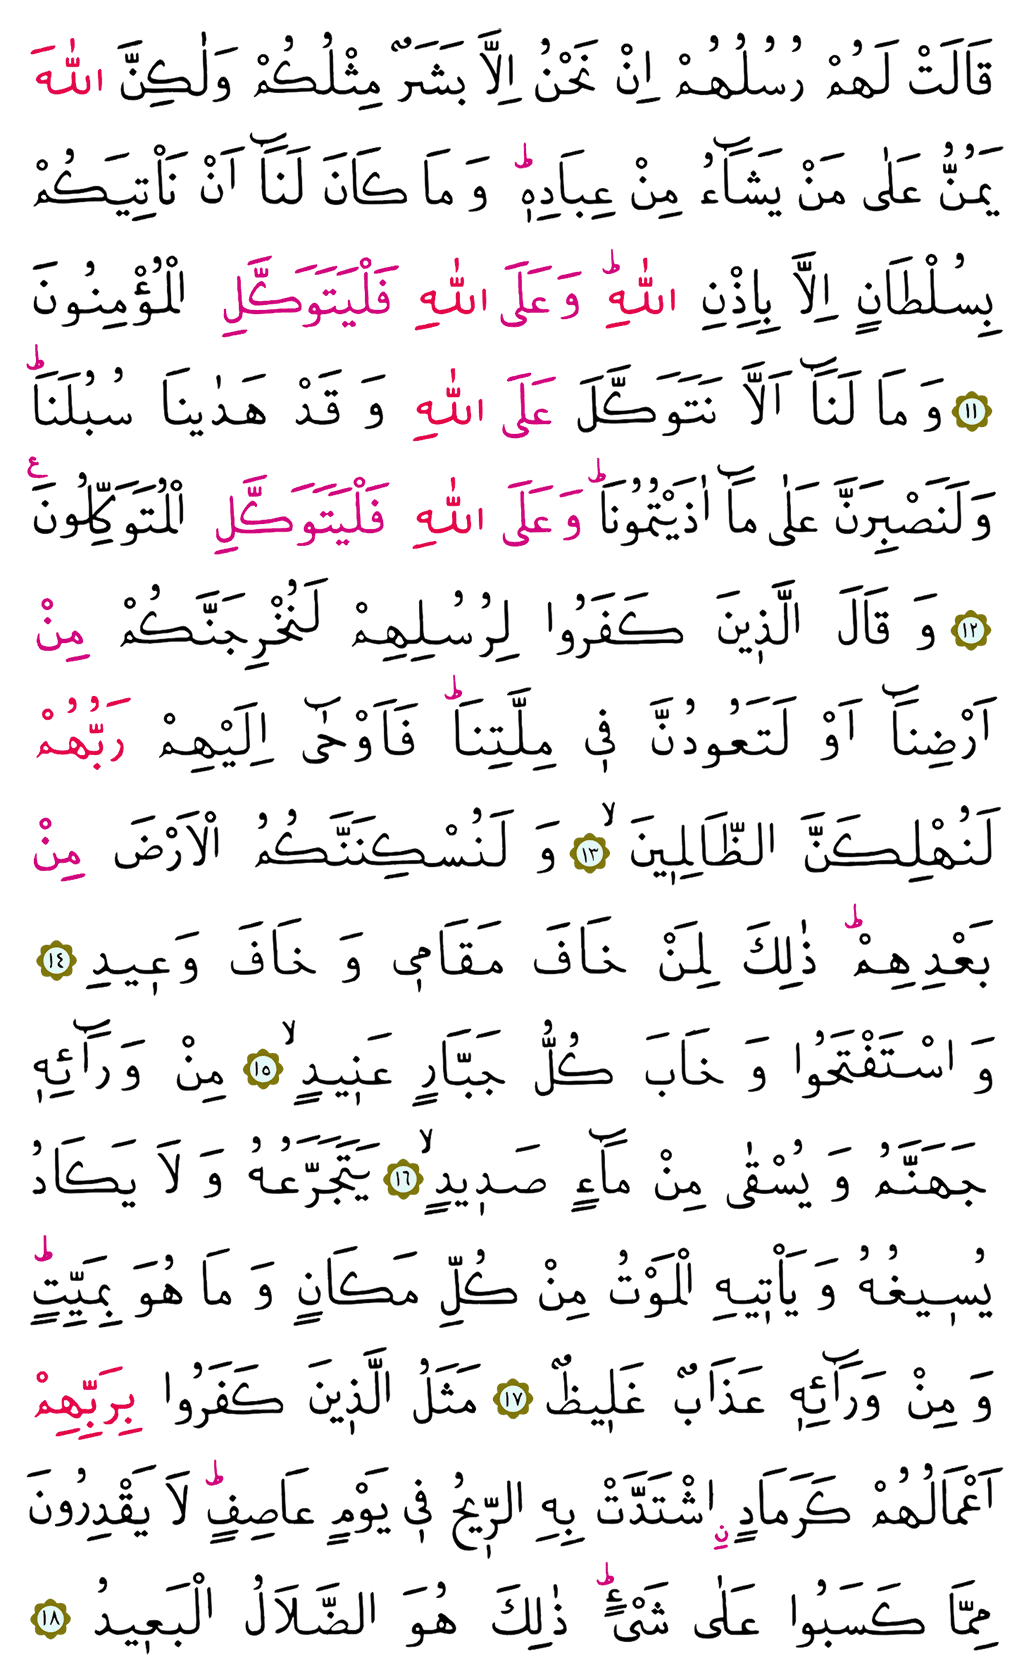 قَالَتْ لَهُمْ رُسُلُهُمْ اِنْ نَحْنُ اِلَّا بَشَرٌ مِثْلُكُمْ وَلٰكِنَّ اللّٰهَ
يَمُنُّ عَلٰى مَنْ يَشَٓاءُ مِنْ عِبَادِهٖۜ وَ مَا كَانَ لَنَٓا اَنْ نَأْتِيَكُمْ
بِسُلْطَانٍ اِلَّا بِاِذْنِ اللّٰهِۜ وَعَلَى اللّٰهِ فَلْيَتَوَكَّلِ الْمُؤْمِنُونَ
﴿١١﴾ وَ مَا لَنَٓا اَلَّا نَتَوَكَّلَ عَلَى اللّٰهِ وَ قَدْ هَدٰينَا سُبُلَنَاۜ
وَلَنَصْبِرَنَّ عَلٰى مَٓا اٰذَيْتُمُونَاۜ وَعَلَى اللّٰهِ فَلْيَتَوَكَّلِ الْمُتَوَكِّلُونَ ع
﴿١٢﴾ وَ قَالَ الَّذٖينَ كَفَرُوا لِرُسُلِهِمْ لَنُخْرِجَنَّكُمْ مِنْ
اَرْضِنَٓا اَوْ لَتَعُودُنَّ فٖى مِلَّتِنَاۜ فَاَوْحٰٓى اِلَيْهِمْ رَبُّهُمْ
لَنُهْلِكَنَّ الظَّالِمٖينَۙ ﴿١٣﴾ وَ لَنُسْكِنَنَّكُمُ الْاَرْضَ مِنْ
بَعْدِهِمْۜ ذٰلِكَ لِمَنْ خَافَ مَقَامٖى وَ خَافَ وَعٖيدِ ﴿١٤﴾
وَ اسْتَفْتَحُوا وَ خَابَ كُلُّ جَبَّارٍ عَنٖيدٍۙ ﴿١٥﴾ مِنْ وَرَٓائِهٖ
جَهَنَّمُ وَ يُسْقٰى مِنْ مَٓاءٍ صَدٖيدٍۙ ﴿١٦﴾ يَتَجَرَّعُهُ وَ لَا يَكَادُ
يُسٖيغُهُ وَ يَأْتٖيهِ الْمَوْتُ مِنْ كُلِّ مَكَانٍ وَ مَا هُوَ بِمَيِّتٍۜ
وَ مِنْ وَرَٓائِهٖ عَذَابٌ غَلٖيظٌ ﴿١٧﴾ مَثَلُ الَّذٖينَ كَفَرُوا بِرَبِّهِمْ
اَعْمَالُهُمْ كَرَمَادٍۨ اشْتَدَّتْ بِهِ الرّٖيحُ فٖى يَوْمٍ عَاصِفٍۜ لَا يَقْدِرُونَ
مِمَّا كَسَبُوا عَلٰى شَىْءٍۜ ذٰلِكَ هُوَ الضَّلَالُ الْبَعٖيدُ ﴿١٨﴾